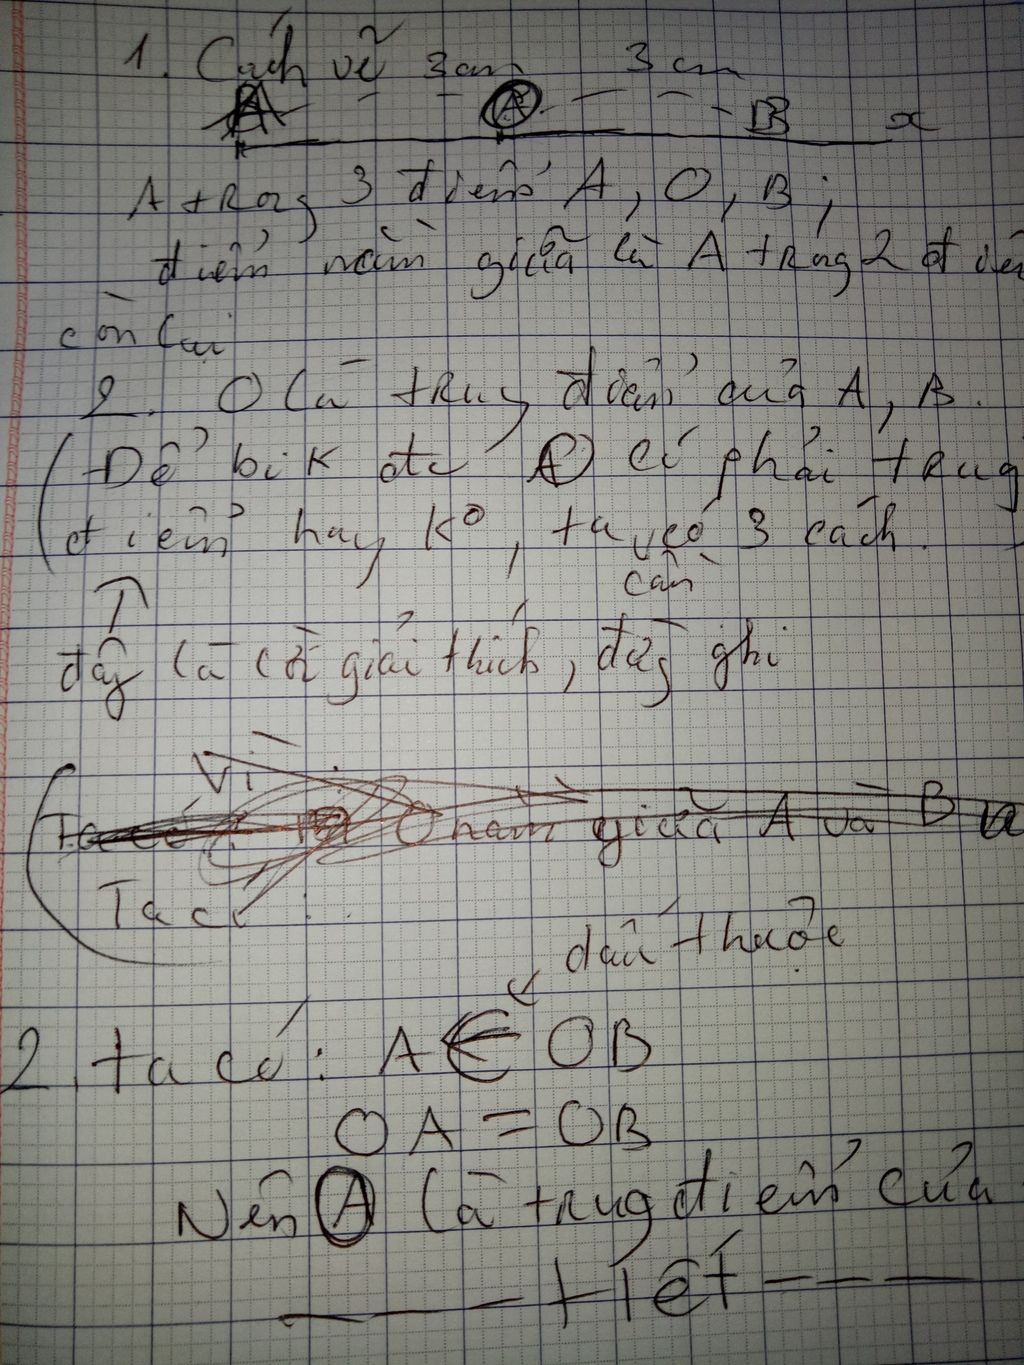 1. Cách vẽ 3cm 3cm
A A B x
A trog 3 điểm A, O, B;
điểm nằm giữa là A trog 2 điể
còn lại
2. O là trug điểm của A, B.
(Để bik đc A có phải trug
điểm hay ko, ta có 3 cách.
cần
đây là lời giải thích, đừg ghi
Vì :
Ta có : O nằm giữa A và B
Ta có :
dấu thuộc
2. ta có: A ∈ OB
OA = OB
Nên A là trug điểm của
Hết